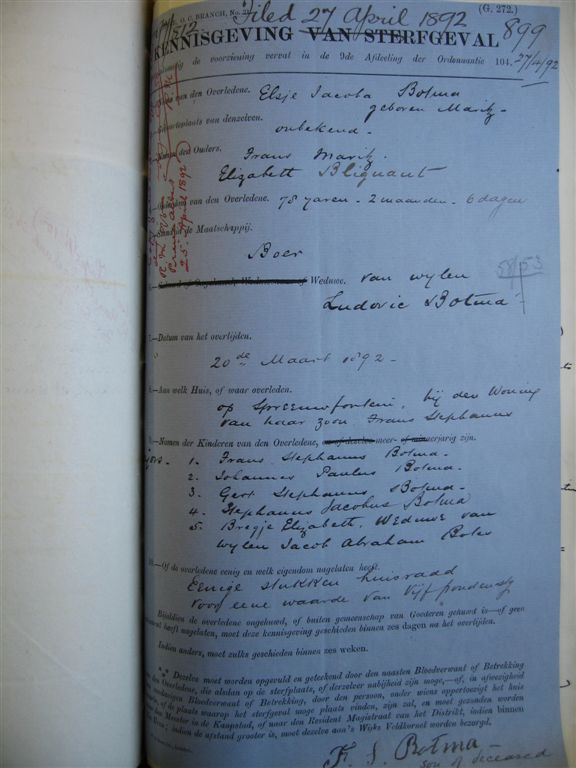 O. C. BRANCH, No.
Filed 27 April 1892
(G. 272.)
899
27/4/92
KENNISGEVING VAN STERFGEVAL
de voorziening vervat in de 9de Afdeeling der Ordonnantie 104.
van den Overledene. Elsje Jacoba Botma
geboren Maritz
van denzelven. onbekend.
Namen der Ouders. Frans Maritz
Elizabeth Blignaut
van den Overledene. 78 yaren - 2 maanden - 6 dagen
25 April 1892
in de Maatschappij.
Boer
Weduwe. van wylen
Ludovic Botma
58/53
7.—Datum van het overlijden.
20de Maart 1892 -
8.—Aan welk Huis, of waar overleden.
op Spreeuwfontein, bij den Woning
van haar zoon Frans Stephanus
9.—Namen der Kinderen van den Overledene, meer- jarig zijn.
1. Frans Stephanus Botma.
2. Johannes Paulus Botma.
3. Gert Stephanus Botma.
4. Stephanus Jacobus Botma
5. Bregje Elizabeth, Weduwe van
wylen Jacob Abraham Botes
10.—Of de overledene eenig en welk eigendom nagelaten heeft.
Eenige stukken huisraad
voor eene waarde van Vijf ponden stg
Bijaldien de overledene ongehuwd, of buiten gemeenschap van Goederen gehuwd is—of geen
heeft nagelaten, moet deze kennisgeving geschieden binnen zes dagen na het overlijden.
Indien anders, moet zulks geschieden binnen zes weken.
Dezelve moet worden opgevuld en geteekend door den naasten Bloedverwant of Betrekking
den Overledene, die alsdan op de sterfplaats, of derzelver nabijheid zijn moge,—of, in afwezigheid
Bloedverwant of Betrekking, door den persoon, onder wiens oppertoezigt het huis
of de plaats waarop het sterfgeval moge plaats vinden, zijn zal, en moet gezonden worden
den Meester in de Kaapstad, of naar den Resident Magistraat van het Distrikt, indien binnen
indien de afstand grooter is, moet dezelve aan 's Wijks Veldkornet worden bezorgd.
F. S. Botma
son of deceased